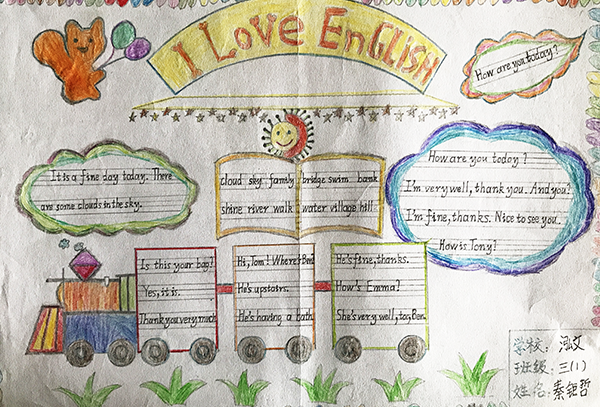 I Love EnGLISH
How are you today?
It is a fine day today. There
are some clouds in the sky.
cloud sky family
shine river walk
bridge swim bank
water village hill
How are you today?
I'm very well, thank you. And you?
I'm fine, thanks. Nice to see you.
How is Tony?
Is this your bag?
Yes, it is.
Thank you very much.
Hi, Tom! Where's Ben?
He's upstairs.
He's having a bath.
He's fine, thanks.
How's Emma?
She's very well, too, Ben.
学校: 泓文
班级: 三(1)
姓名: 秦钜哲